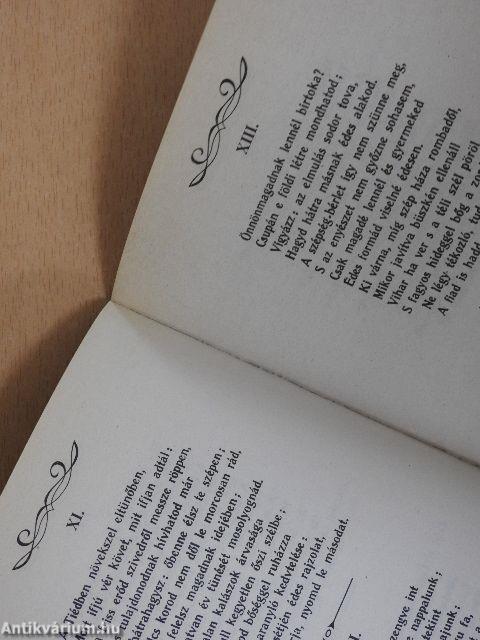 XIII.
Önnönmagadnak lennél birtoka?
Csupán e földi létre mondhatod;
Vigyázz: az elmulás sodor tova,
Hagyd hátra másnak édes alakod.
A szépség-bérlet igy nem szünne meg,
S az enyészet nem győzne sohasem,
Csak magadé lennél és gyermeked
Édes formád viselné édesen.
Ki várna, míg szép háza rombadől,
Mikor javítva büszkén ellenáll
Vihar ha ver s a téli szél pöröl
S fagyos hideggel bőg a
Ne légy tékozló, tud
A fiad is hadd
XI.
növekszel eltünőben,
ifjú vér követ, mit ifjan adtál:
erőd szivedről messze röppen,
hívhatod már
: őbenne élsz te szépen;
korod nem dől le morcosan rád,
felelsz magadnak idejében;
év tünését mosolyognád.
kalászok árvasága
kegyetlen őszi szélbe;
bőséggel ruházza
kedvtelése:
édes rajzolat,
nyomd le másodat.
I.
zengve int
nappalunk;
kint
Antikvárium.hu